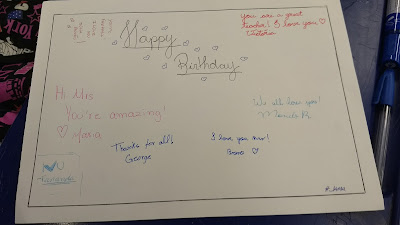 Happy
Birthday
You are a great
teacher! I love you ♡
Victoria
Hi Mrs
You're amazing!
♡ Maria
We all love you!
Thanks for all!
George
I love you mrs!
♡